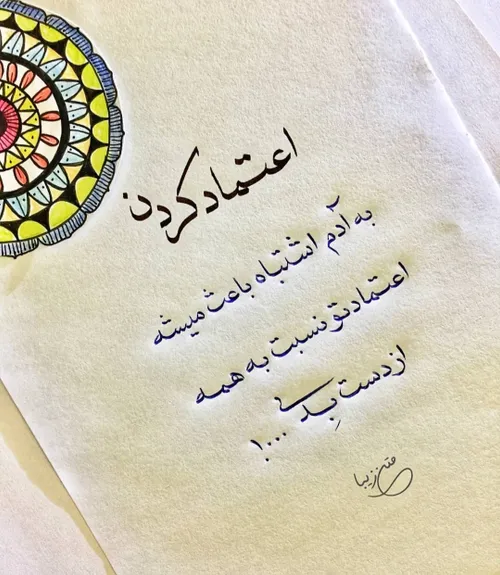 اعتماد کردن
به آدم اشتباه باعث میشه
اعتمادتو نسبت به همه
از دست بِدی ....!
متن زیبا